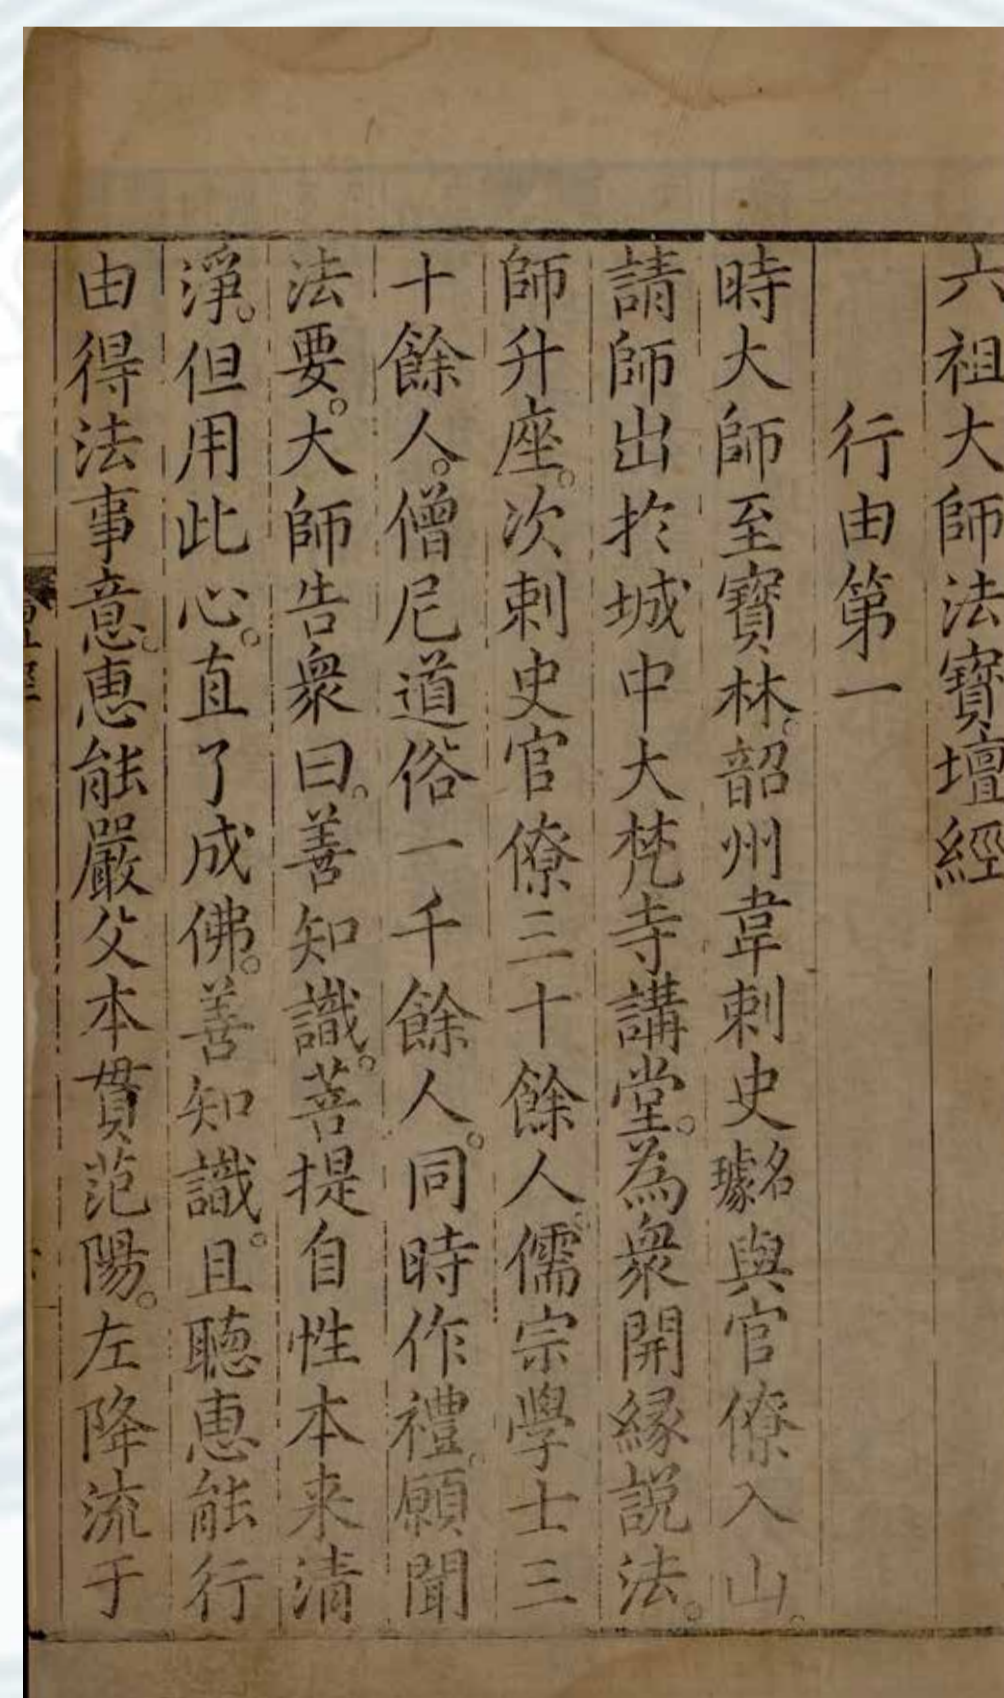 六祖大師法寶壇經
行由第一
時大師至寶林。韶州韋刺史名璩與官僚入山。
請師出於城中大梵寺講堂。為衆開縁説法。
師升座。次刺史官僚三十餘人。儒宗學士三
十餘人。僧尼道俗一千餘人。同時作禮。願聞
法要。大師告衆曰。善知識。菩提自性本来清
淨。但用此心。直了成佛。善知識。且聽惠能行
由得法事意。惠能嚴父本貫范陽。左降流于